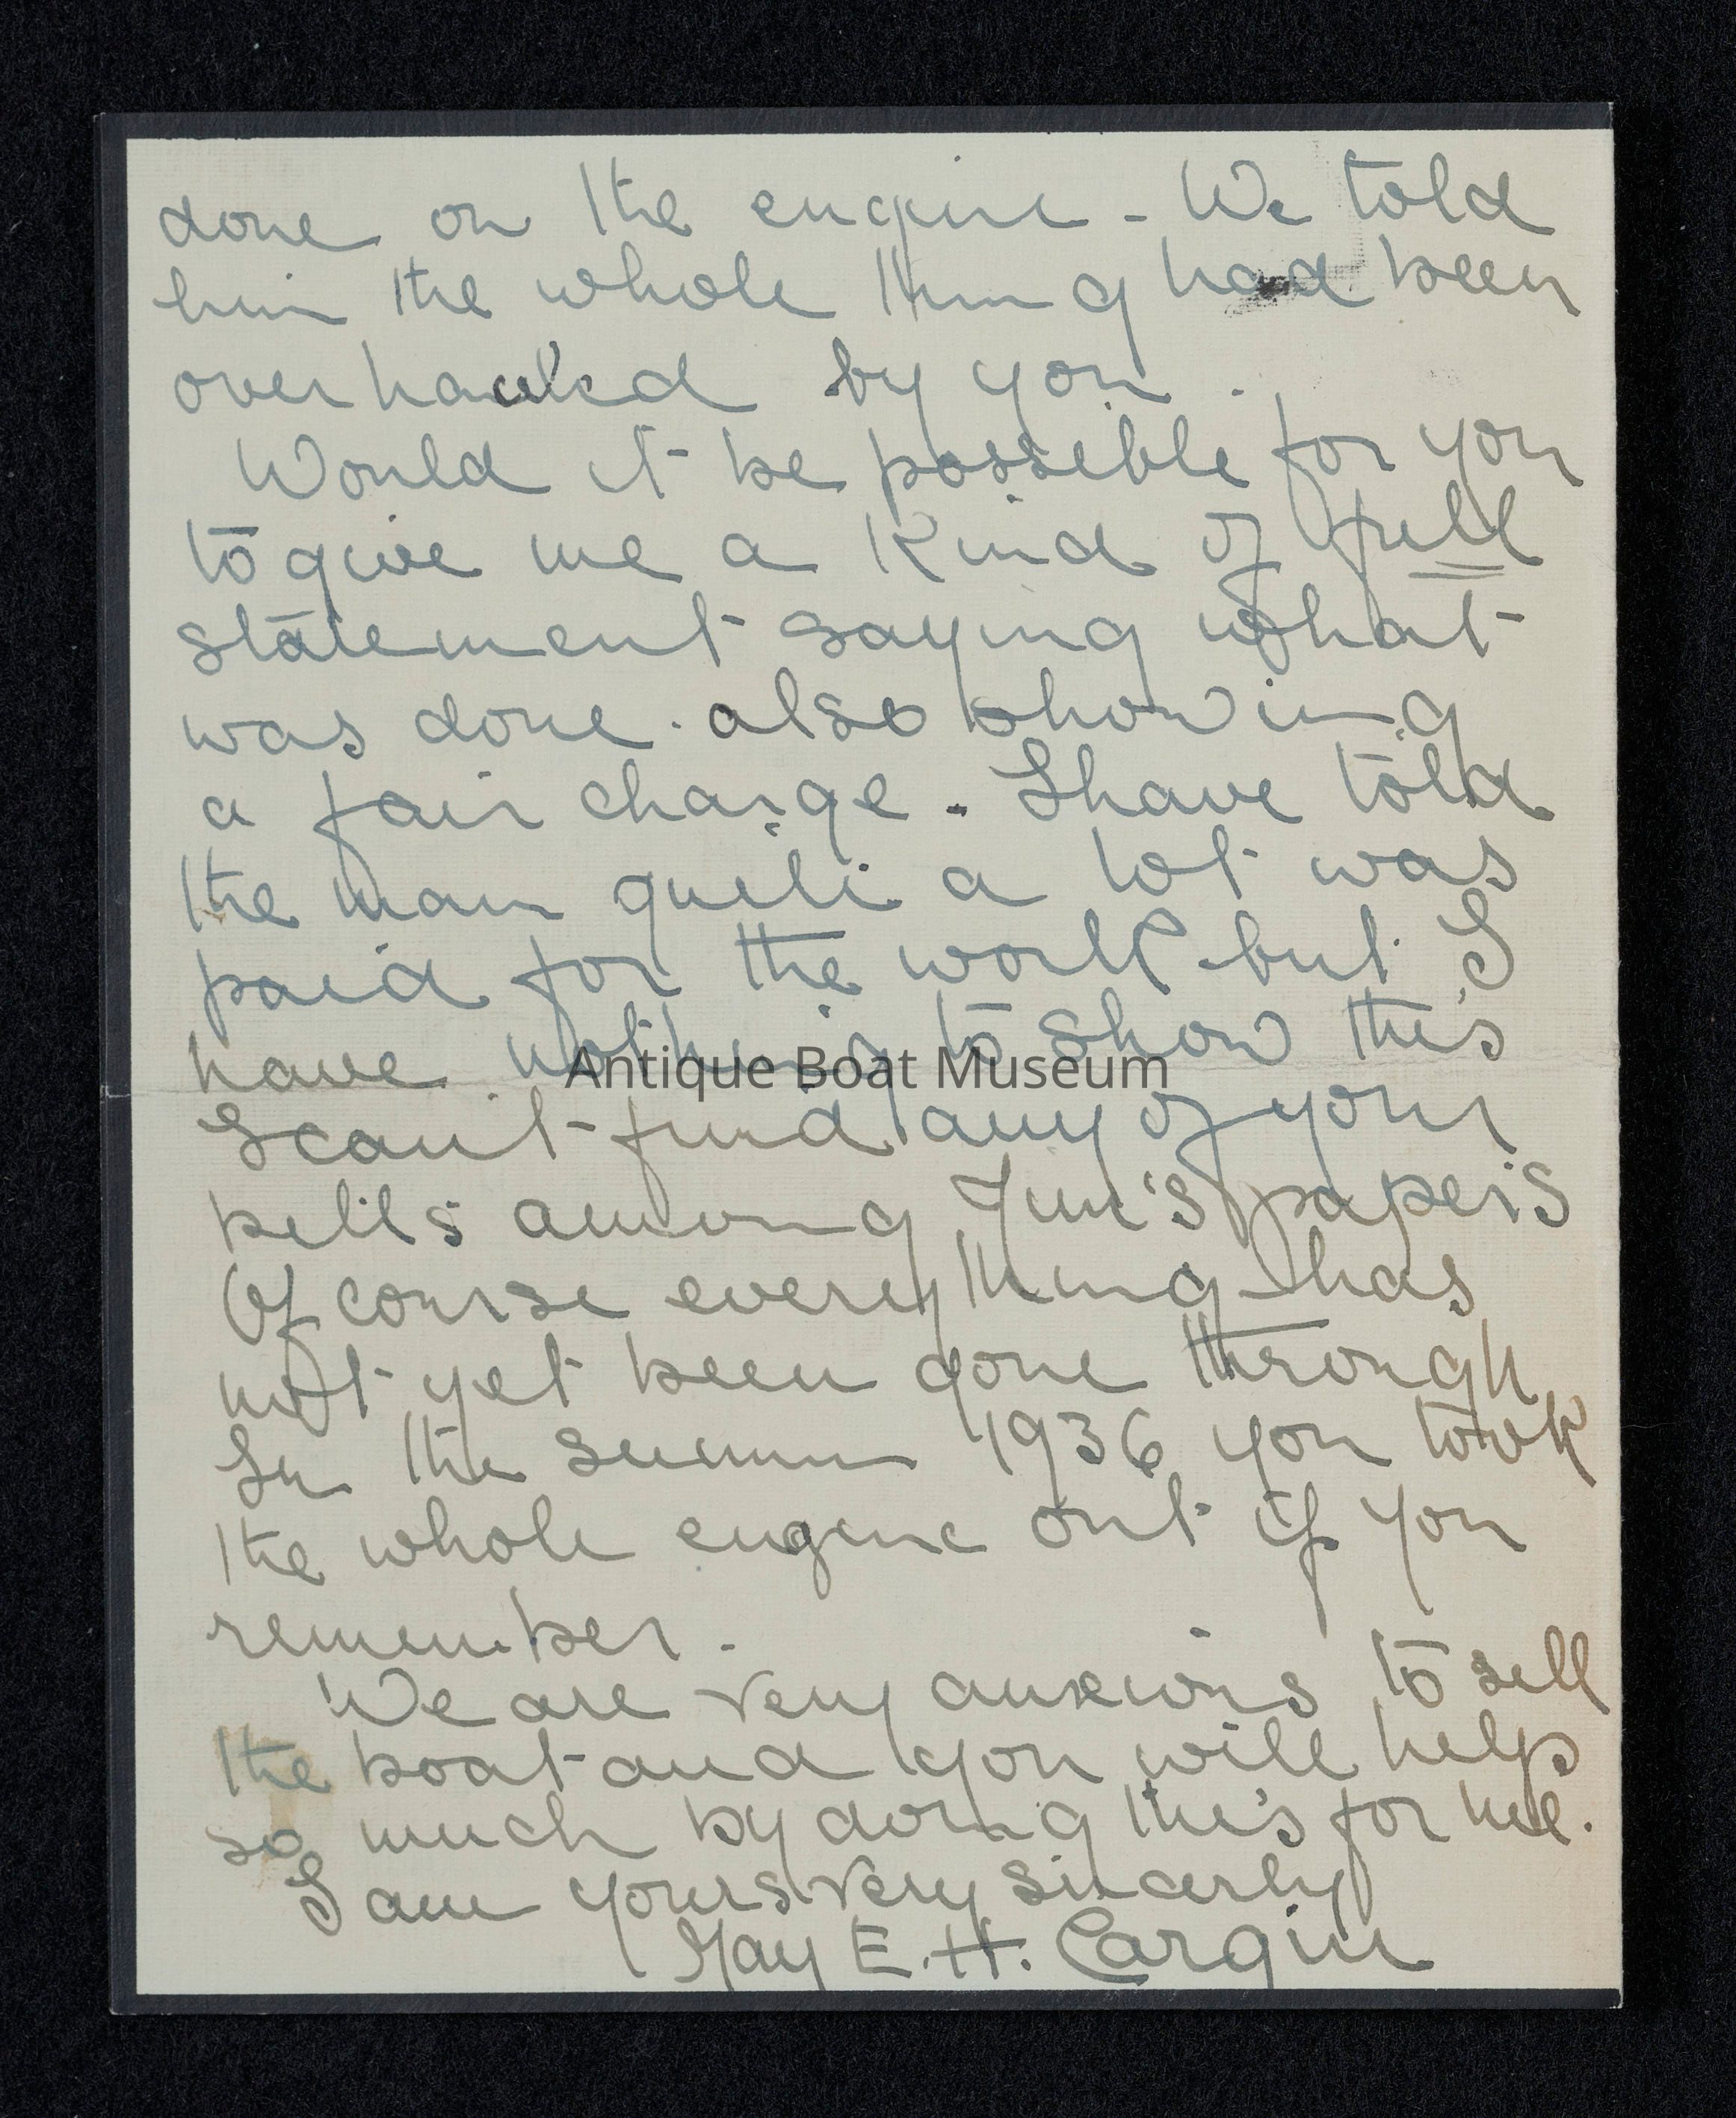 done on the engine - We told
him the whole thing had been
overhauled by you.
Would it be possible for you
to give me a Kind of full
statement saying what
was done. also showing
a fair charge. I have told
the man quite a lot was
paid for the work but I
have nothing to show this
Antique Boat Museum
I can't find any of your
bills among Jim's papers
Of course everything has
not yet been gone through
In the summer 1936 you took
the whole engine out if you
remember.
We are very anxious to sell
the boat and you will help
so much by doing this for me.
I am yours very sincerly
May E. H. Cargin